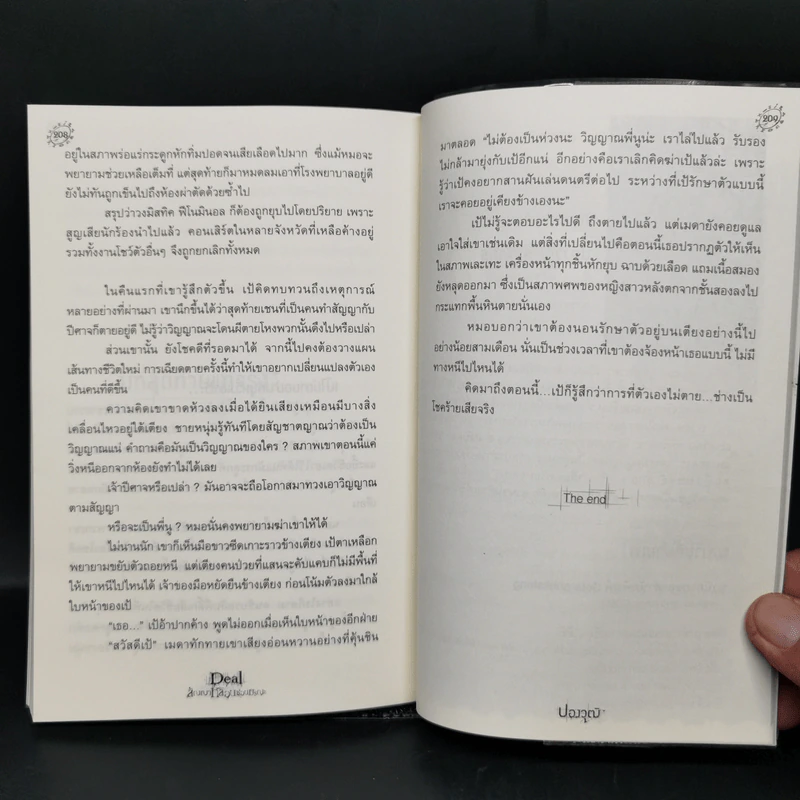 208
อยู่ในสภาพร่อแร่กระดูกหักทิ่มปอดจนเสียเลือดไปมาก ซึ่งแม้หมอจะ
พยายามช่วยเหลือเต็มที่ แต่สุดท้ายก็มาหมดลมเอาที่โรงพยาบาลอยู่ดี
ยังไม่ทันถูกเข็นไปถึงห้องผ่าตัดด้วยซ้ำไป
สรุปว่าวงมิสทิค ฟีโนมินอล ก็ต้องถูกยุบไปโดยปริยาย เพราะ
สูญเสียนักร้องนำไปแล้ว คอนเสิร์ตในหลายจังหวัดที่เหลือค้างอยู่
รวมทั้งงานโชว์ตัวอื่นๆ จึงถูกยกเลิกทั้งหมด
ในคืนแรกที่เขารู้สึกตัวขึ้น เป้คิดทบทวนถึงเหตุการณ์
หลายอย่างที่ผ่านมา เขานึกขึ้นได้ว่าสุดท้ายเชนที่เป็นคนทำสัญญากับ
ปีศาจก็ตายอยู่ดี ไม่รู้ว่าวิญญาณจะโดนผีตายโหงพวกนั้นดึงไปหรือเปล่า
ส่วนเขานั้น ยังโชคดีที่รอดมาได้ จากนี้ไปคงต้องวางแผน
เส้นทางชีวิตใหม่ การเฉียดตายครั้งนี้ทำให้เขาอยากเปลี่ยนแปลงตัวเอง
เป็นคนที่ดีขึ้น
ความคิดเขาขาดห้วงลงเมื่อได้ยินเสียงเหมือนมีบางสิ่ง
เคลื่อนไหวอยู่ใต้เตียง ชายหนุ่มรู้ทันทีโดยสัญชาตญาณว่าต้องเป็น
วิญญาณแน่ คำถามคือมันเป็นวิญญาณของใคร ? สภาพเขาตอนนี้แค่
วิ่งหนีออกจากห้องยังทำไม่ได้เลย
เจ้าปีศาจหรือเปล่า ? มันอาจจะถือโอกาสมาทวงเอาวิญญาณ
ตามสัญญา
หรือจะเป็นพี่นู ? หมอนั่นคงพยายามฆ่าเขาให้ได้
ไม่นานนัก เขาก็เห็นมือขาวซีดเกาะราวข้างเตียง เป้ตาเหลือก
พยายามขยับตัวถอยหนี แต่เตียงคนป่วยที่แสนจะคับแคบก็ไม่มีพื้นที่
ให้เขาหนีไปไหนได้ เจ้าของมือหยัดยืนข้างเตียง ก่อนโน้มตัวลงมาใกล้
ใบหน้าของเป้
"เธอ..." เป้อ้าปากค้าง พูดไม่ออกเมื่อเห็นใบหน้าของอีกฝ่าย
"สวัสดีเป้" เมดาทักทายเขาเสียงอ่อนหวานอย่างที่คุ้นชิน
Deal
209
มาตลอด "ไม่ต้องเป็นห่วงนะ วิญญาณพี่นูน่ะ เราไล่ไปแล้ว รับรอง
ไม่กล้ามายุ่งกับเป้อีกแน่ อีกอย่างคือเราเลิกคิดฆ่าเป้แล้วล่ะ เพราะ
รู้ว่าเป้คงอยากสานฝันเล่นดนตรีต่อไป ระหว่างที่เป้รักษาตัวแบบนี้
เราจะคอยอยู่เคียงข้างเองนะ"
เป้ไม่รู้จะตอบอะไรไปดี ถึงตายไปแล้ว แต่เมดายังคอยดูแล
เอาใจใส่เขาเช่นเดิม แต่สิ่งที่เปลี่ยนไปคือตอนนี้เธอปรากฏตัวให้เห็น
ในสภาพเละเทะ เครื่องหน้าทุกชิ้นหักยุบ ฉาบด้วยเลือด แถมเนื้อสมอง
ยังหลุดออกมา ซึ่งเป็นสภาพศพของหญิงสาวหลังตกจากชั้นสองลงไป
กระแทกพื้นหินตายนั่นเอง
หมอบอกว่าเขาต้องนอนรักษาตัวอยู่บนเตียงอย่างนี้ไป
อย่างน้อยสามเดือน นั่นเป็นช่วงเวลาที่เขาต้องจ้องหน้าเธอแบบนี้ ไม่มี
ทางหนีไปไหนได้
คิดมาถึงตอนนี้...เป้ก็รู้สึกว่าการที่ตัวเองไม่ตาย...ช่างเป็น
โชคร้ายเสียจริง
The end
ปองวุฒิ